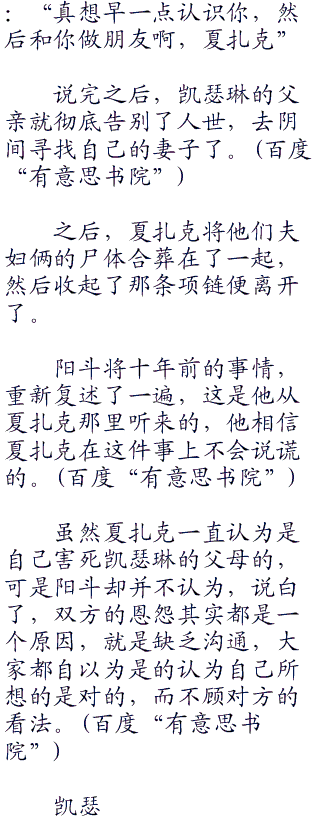 ：“真想早一点认识你，然
后和你做朋友啊，夏扎克”
说完之后，凯瑟琳的父
亲就彻底告别了人世，去阴
间寻找自己的妻子了。(百度
“有意思书院”)
之后，夏扎克将他们夫
妇俩的尸体合葬在了一起，
然后收起了那条项链便离开
了。
阳斗将十年前的事情，
重新复述了一遍，这是他从
夏扎克那里听来的，他相信
夏扎克在这件事上不会说谎
的。(百度“有意思书院”)
虽然夏扎克一直认为是
自己害死凯瑟琳的父母的，
可是阳斗却并不认为，说白
了，双方的恩怨其实都是一
个原因，就是缺乏沟通，大
家都自以为是的认为自己所
想的是对的，而不顾对方的
看法。(百度“有意思书
院”)
凯瑟